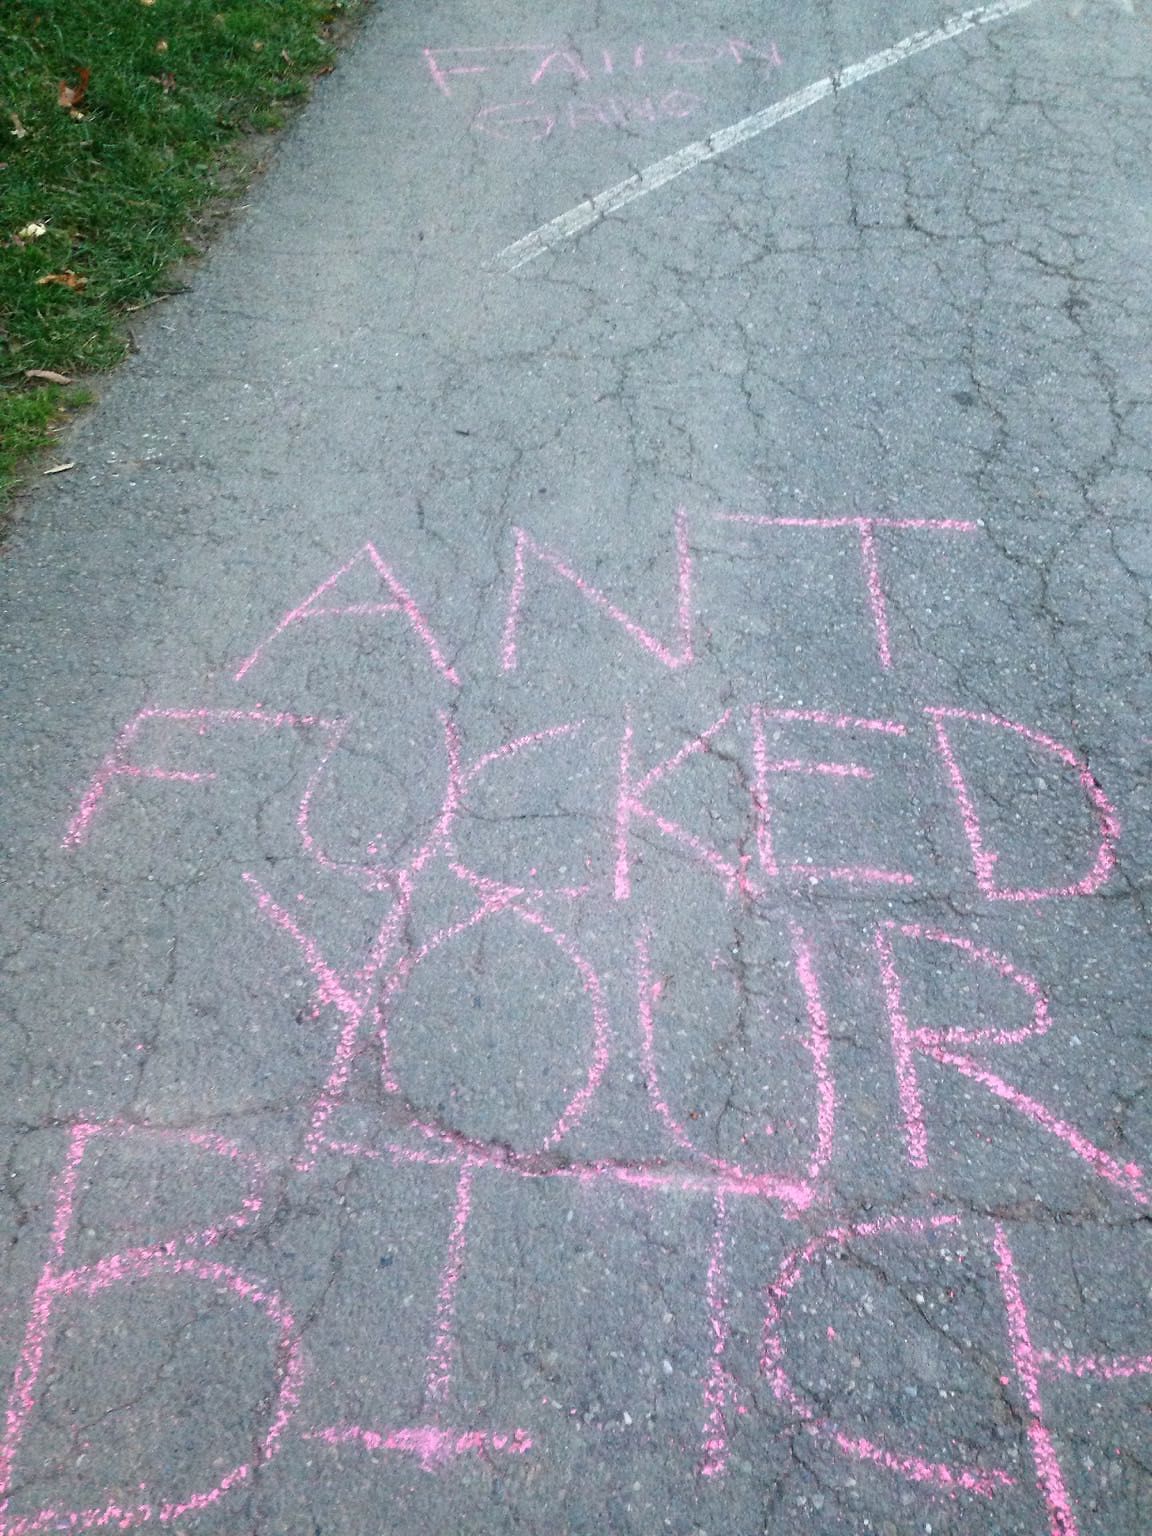 FALLON
ANT
FUCKED
YOUR
BITCH